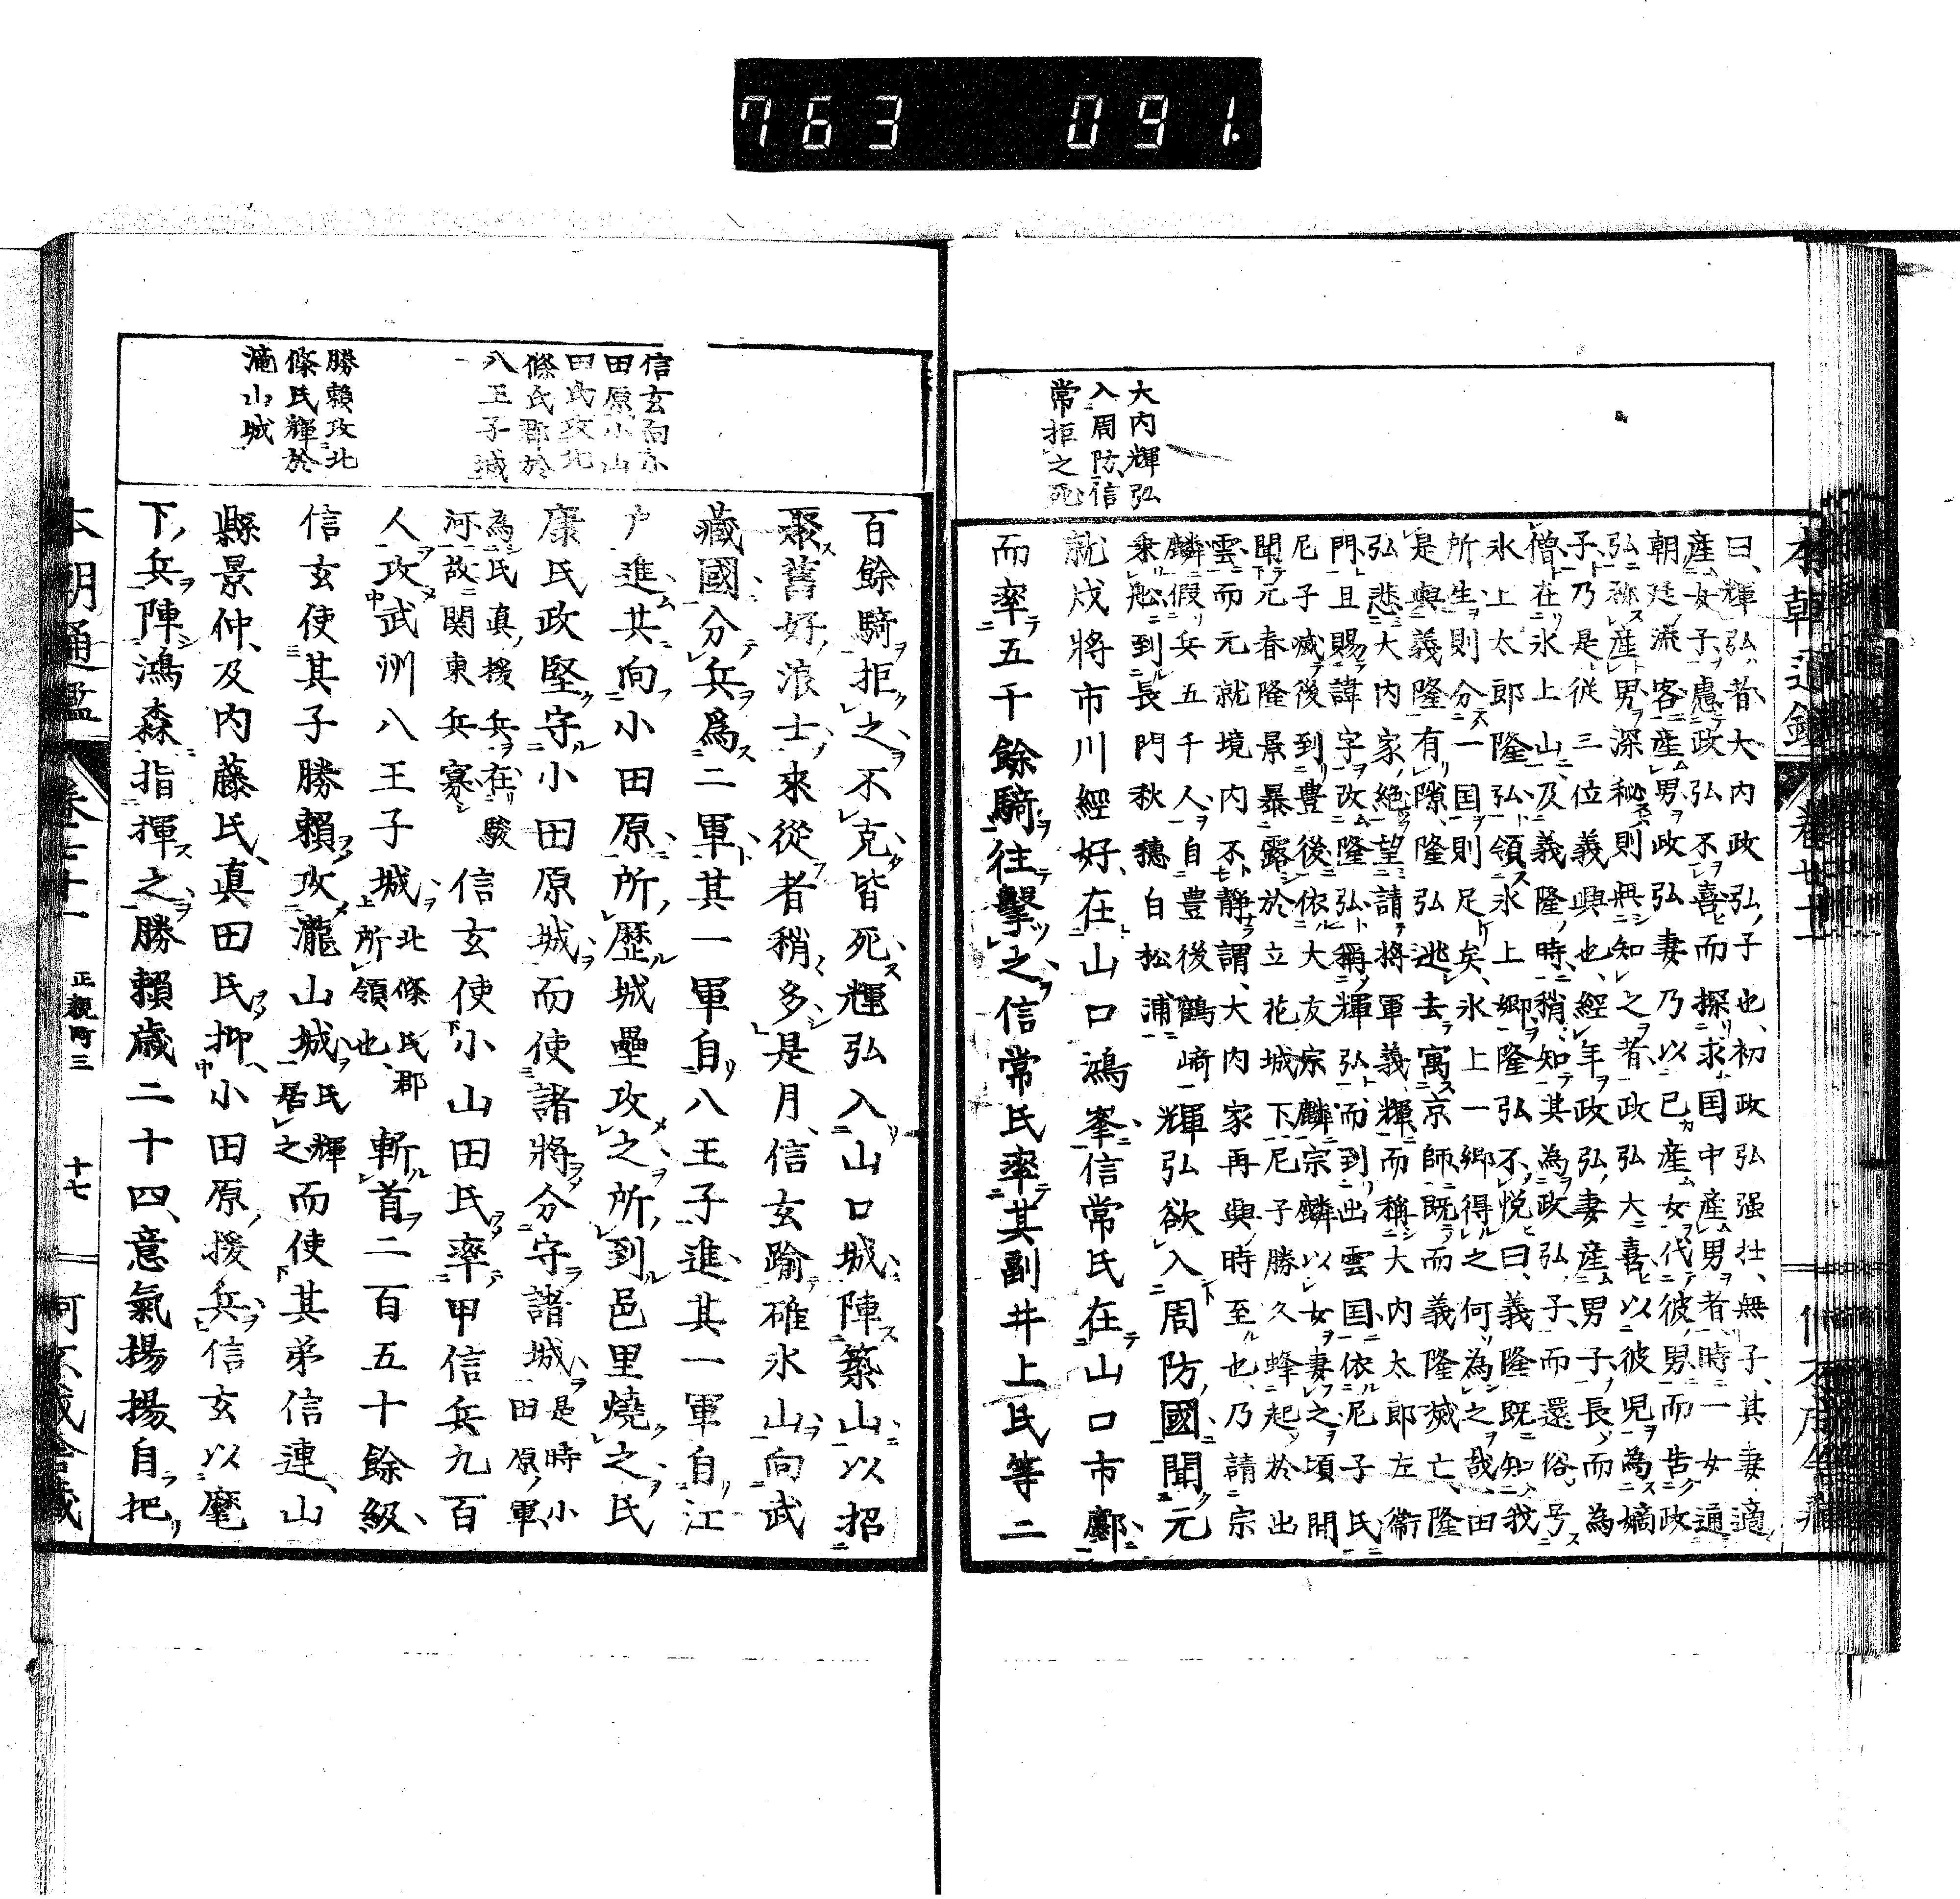 763 091.
大内輝弘
入周防信
常拒之死
曰輝弘者大内政弘子也初政弘强壮無子其妻適
産女子憲政弘不喜而探求国中産男者時一女通
朝廷流客産男政弘妻乃以己産女代彼男而告政
弘称産男深秘則無知之者政弘大喜以彼児為嫡
子乃是從三位義興也経年政弘妻産男子長而為
僧在氷上山及義隆時稍知其為政弘子而還俗号
氷上太郎隆弘領氷上郷隆弘不悦曰義隆既知我
所生則分一国則足矣氷上一郷得之何為之哉田
是與義隆有隙隆弘逃去寓京師既而義隆滅亡隆
弘悲大内家絶望請將軍義輝而稱大内太郎左衞
門且賜諱字改隆弘稱輝弘而到出雲国依尼子氏
尼子滅後到豊後依大友宗麟宗麟以女妻之頃聞
聞元春隆景暴露於立花城下尼子勝久蜂起於出
雲而元就境内不静謂大内家再興時至也乃請宗
麟假兵五千人自豊後鶴崎
乗舩到長門秋穂白松浦
輝弘欲入周防國聞元
就戍將市川經好在山口鴻峯信常氏在山口市鄽
而率五千餘騎往擊之信常氏率其副井上氏等二
本朝通鑑
信玄向小
田原小山
田氏攻北
條氏郡於
八王子城
勝賴攻北
條氏輝於
瀧山城
百餘騎拒之不克皆死輝弘入山口城陣築山以招
聚舊好浪士來從者稍多是月信玄踰碓氷山向武
藏國分兵爲二軍其一軍自八王子進其一軍自江
户進共向小田原所歷城壘攻之所到邑里燒之氏
康氏政堅守小田原城而使諸將分守諸城是時小
田原軍
為氏真援兵在駿
河故関東兵寡
信玄使小山田氏率甲信兵九百
人攻武州八王子城北條氏郡
所領也
斬首二百五十餘級
信玄使其子勝賴攻瀧山城氏輝
居之
而使其弟信連山
縣景仲及内藤氏真田氏抑小田原援兵信玄以麾
下兵陣鴻森指揮之勝賴歳二十四意氣揚揚自把
本朝通鑑
正親町三
十七